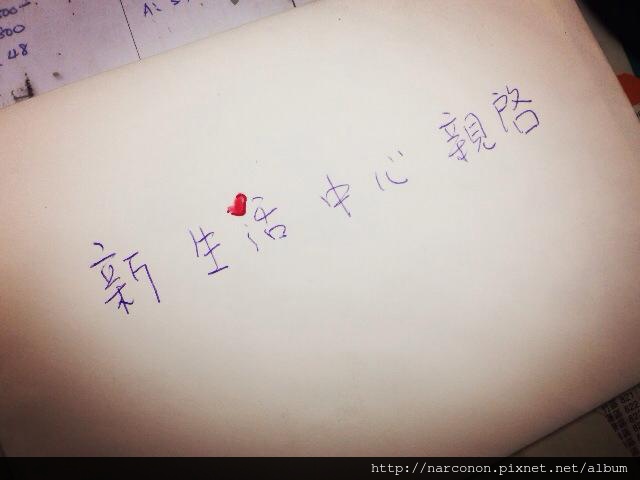 800
48
新生活中心 親啓
http://narconon.pixnet.net/album